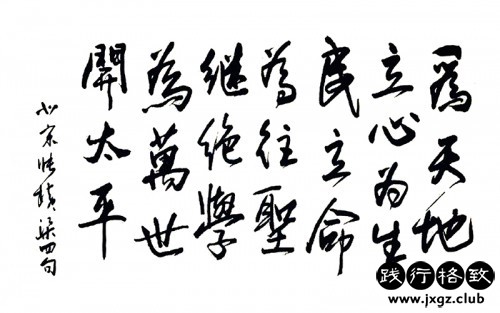 為天地
立心为生
民立命
為往聖
继绝學
為萬世
開太平
北宋张横渠四句
践行格致
www.jxgz.club